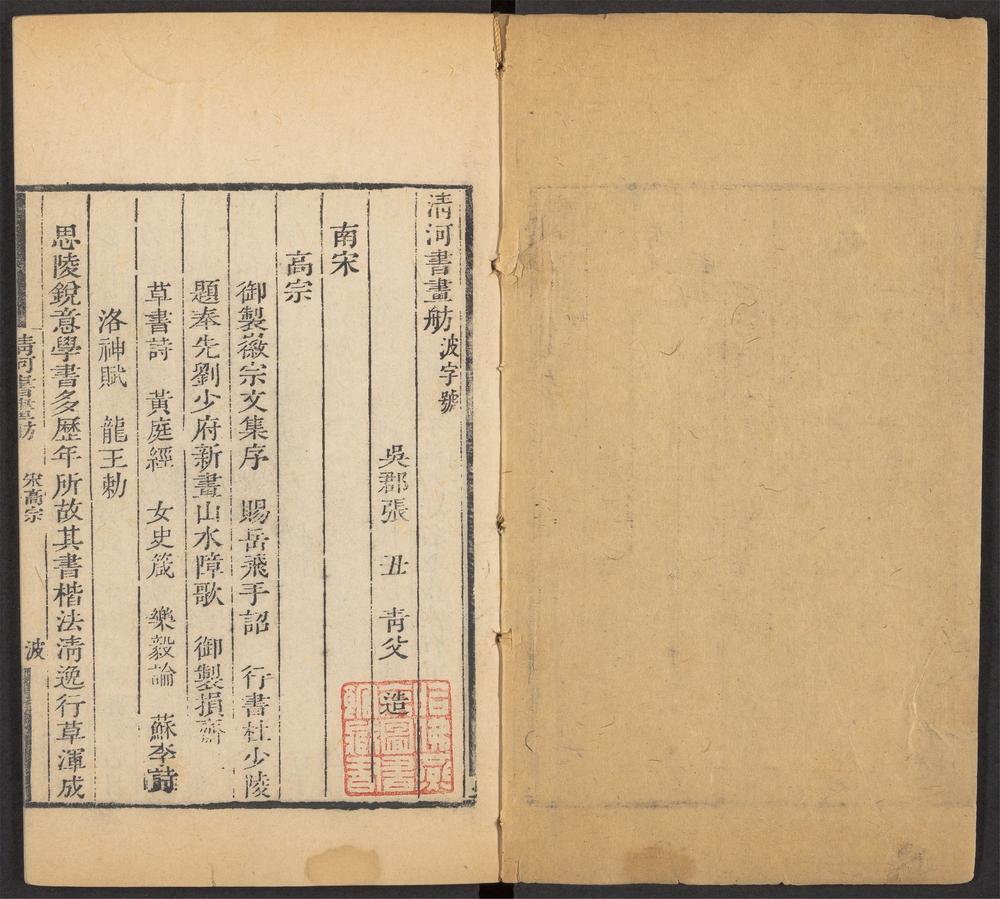 清河書畫舫波字號
吳郡張丑青父造
南宋
高宗
御製徽宗文集序 賜岳飛手詔 行書杜少陵
題奉先劉少府新畫山水障歌 御製損齋
草書詩 黃庭經 女史箴 樂毅論 蘇李詩
洛神賦 龍王勅
思陵銳意學書多歷年所故其書楷法清逸行草渾成
清河書畫舫 宋高宗 波